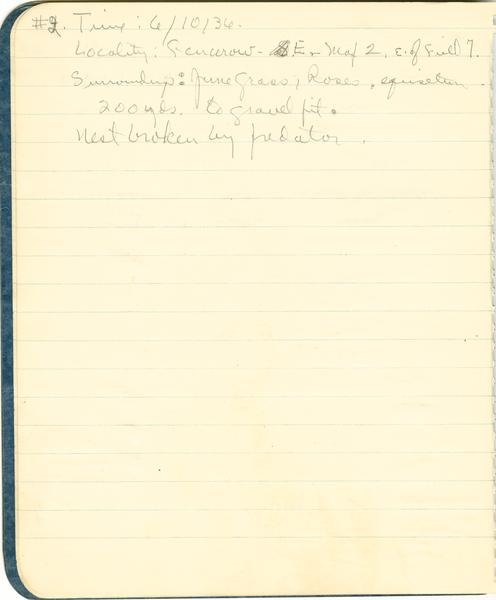 #2. Time: 6/10/36.
Locality: Fencerow - E - Map 2, E. of Field 7.
Surroundings: June Grass, Roses, equisetum.
200 yds. to gravel pit.
Nest broken by predator.